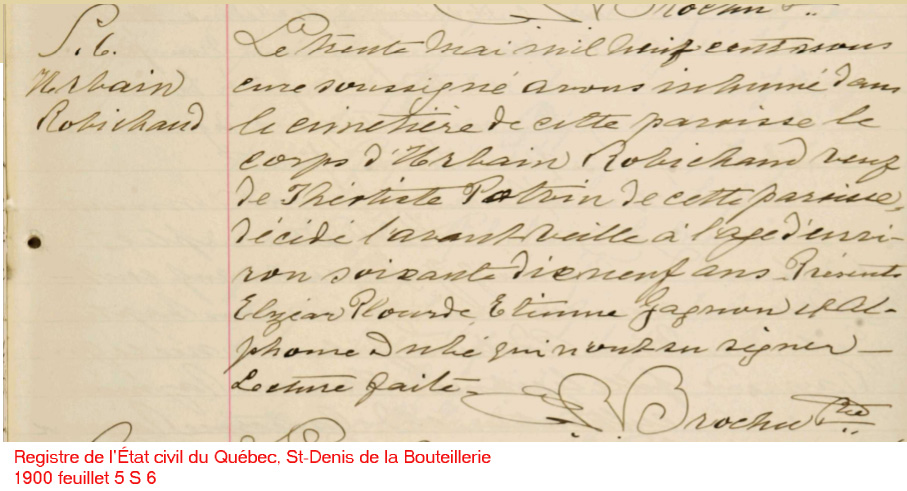 Brochu Ptre
S. 6.
Urbain
Robichaud
Le trente mai mil neuf cent nous
curé soussigné avons inhumé dans
le cimetière de cette paroisse le
corps d'Urbain Robichaud veuf
de Théotiste Potvin de cette paroisse,
décédé l'avant veille à l'age d'envi-
ron soixante dix neuf ans. Présents
Elzéar Plourde Etienne Gagnon et Al-
phonse Dubé qui n'ont su signer –
Lecture faite.
Brochu Ptre
Registre de l'État civil du Québec, St-Denis de la Bouteillerie
1900 feuillet 5 S 6